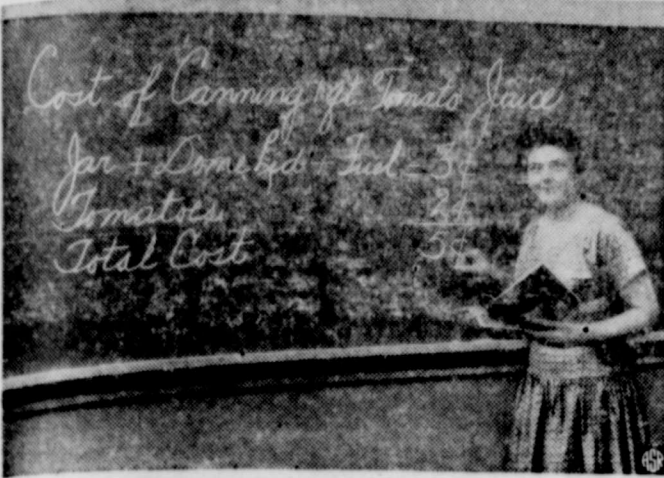 Cost of Canning 1 qt Tomato Juice
Jar + Dome Lid + Fuel = 3¢
Tomatoes 2¢
Total Cost 5¢
ASR